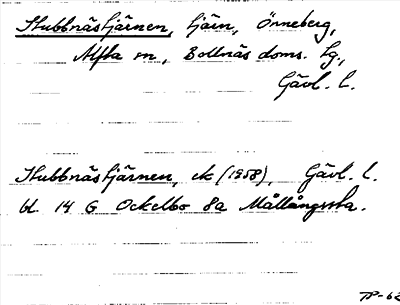 Stubbnästjärnen, tjärn, Önneberg,
Alfta sn, Bollnäs doms. lg.,
Gävl. l.
Stubbnästjärnen, ek (1958), Gävl. l.
bl. 14 G Ockelbo 8a Mållångssta.
TP-62